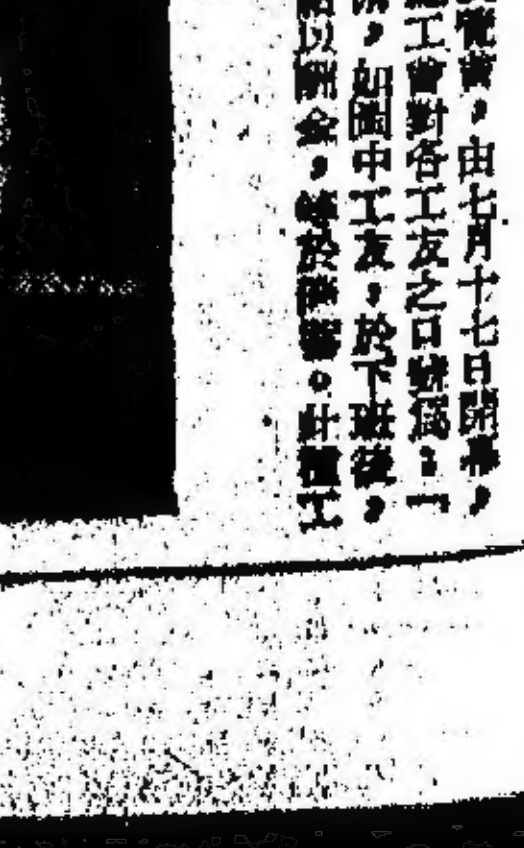 覽會，由七月十七日開幕，
工會對各工友之口號為：「
，如園中工友，於下班後，
以酬金，。此種工